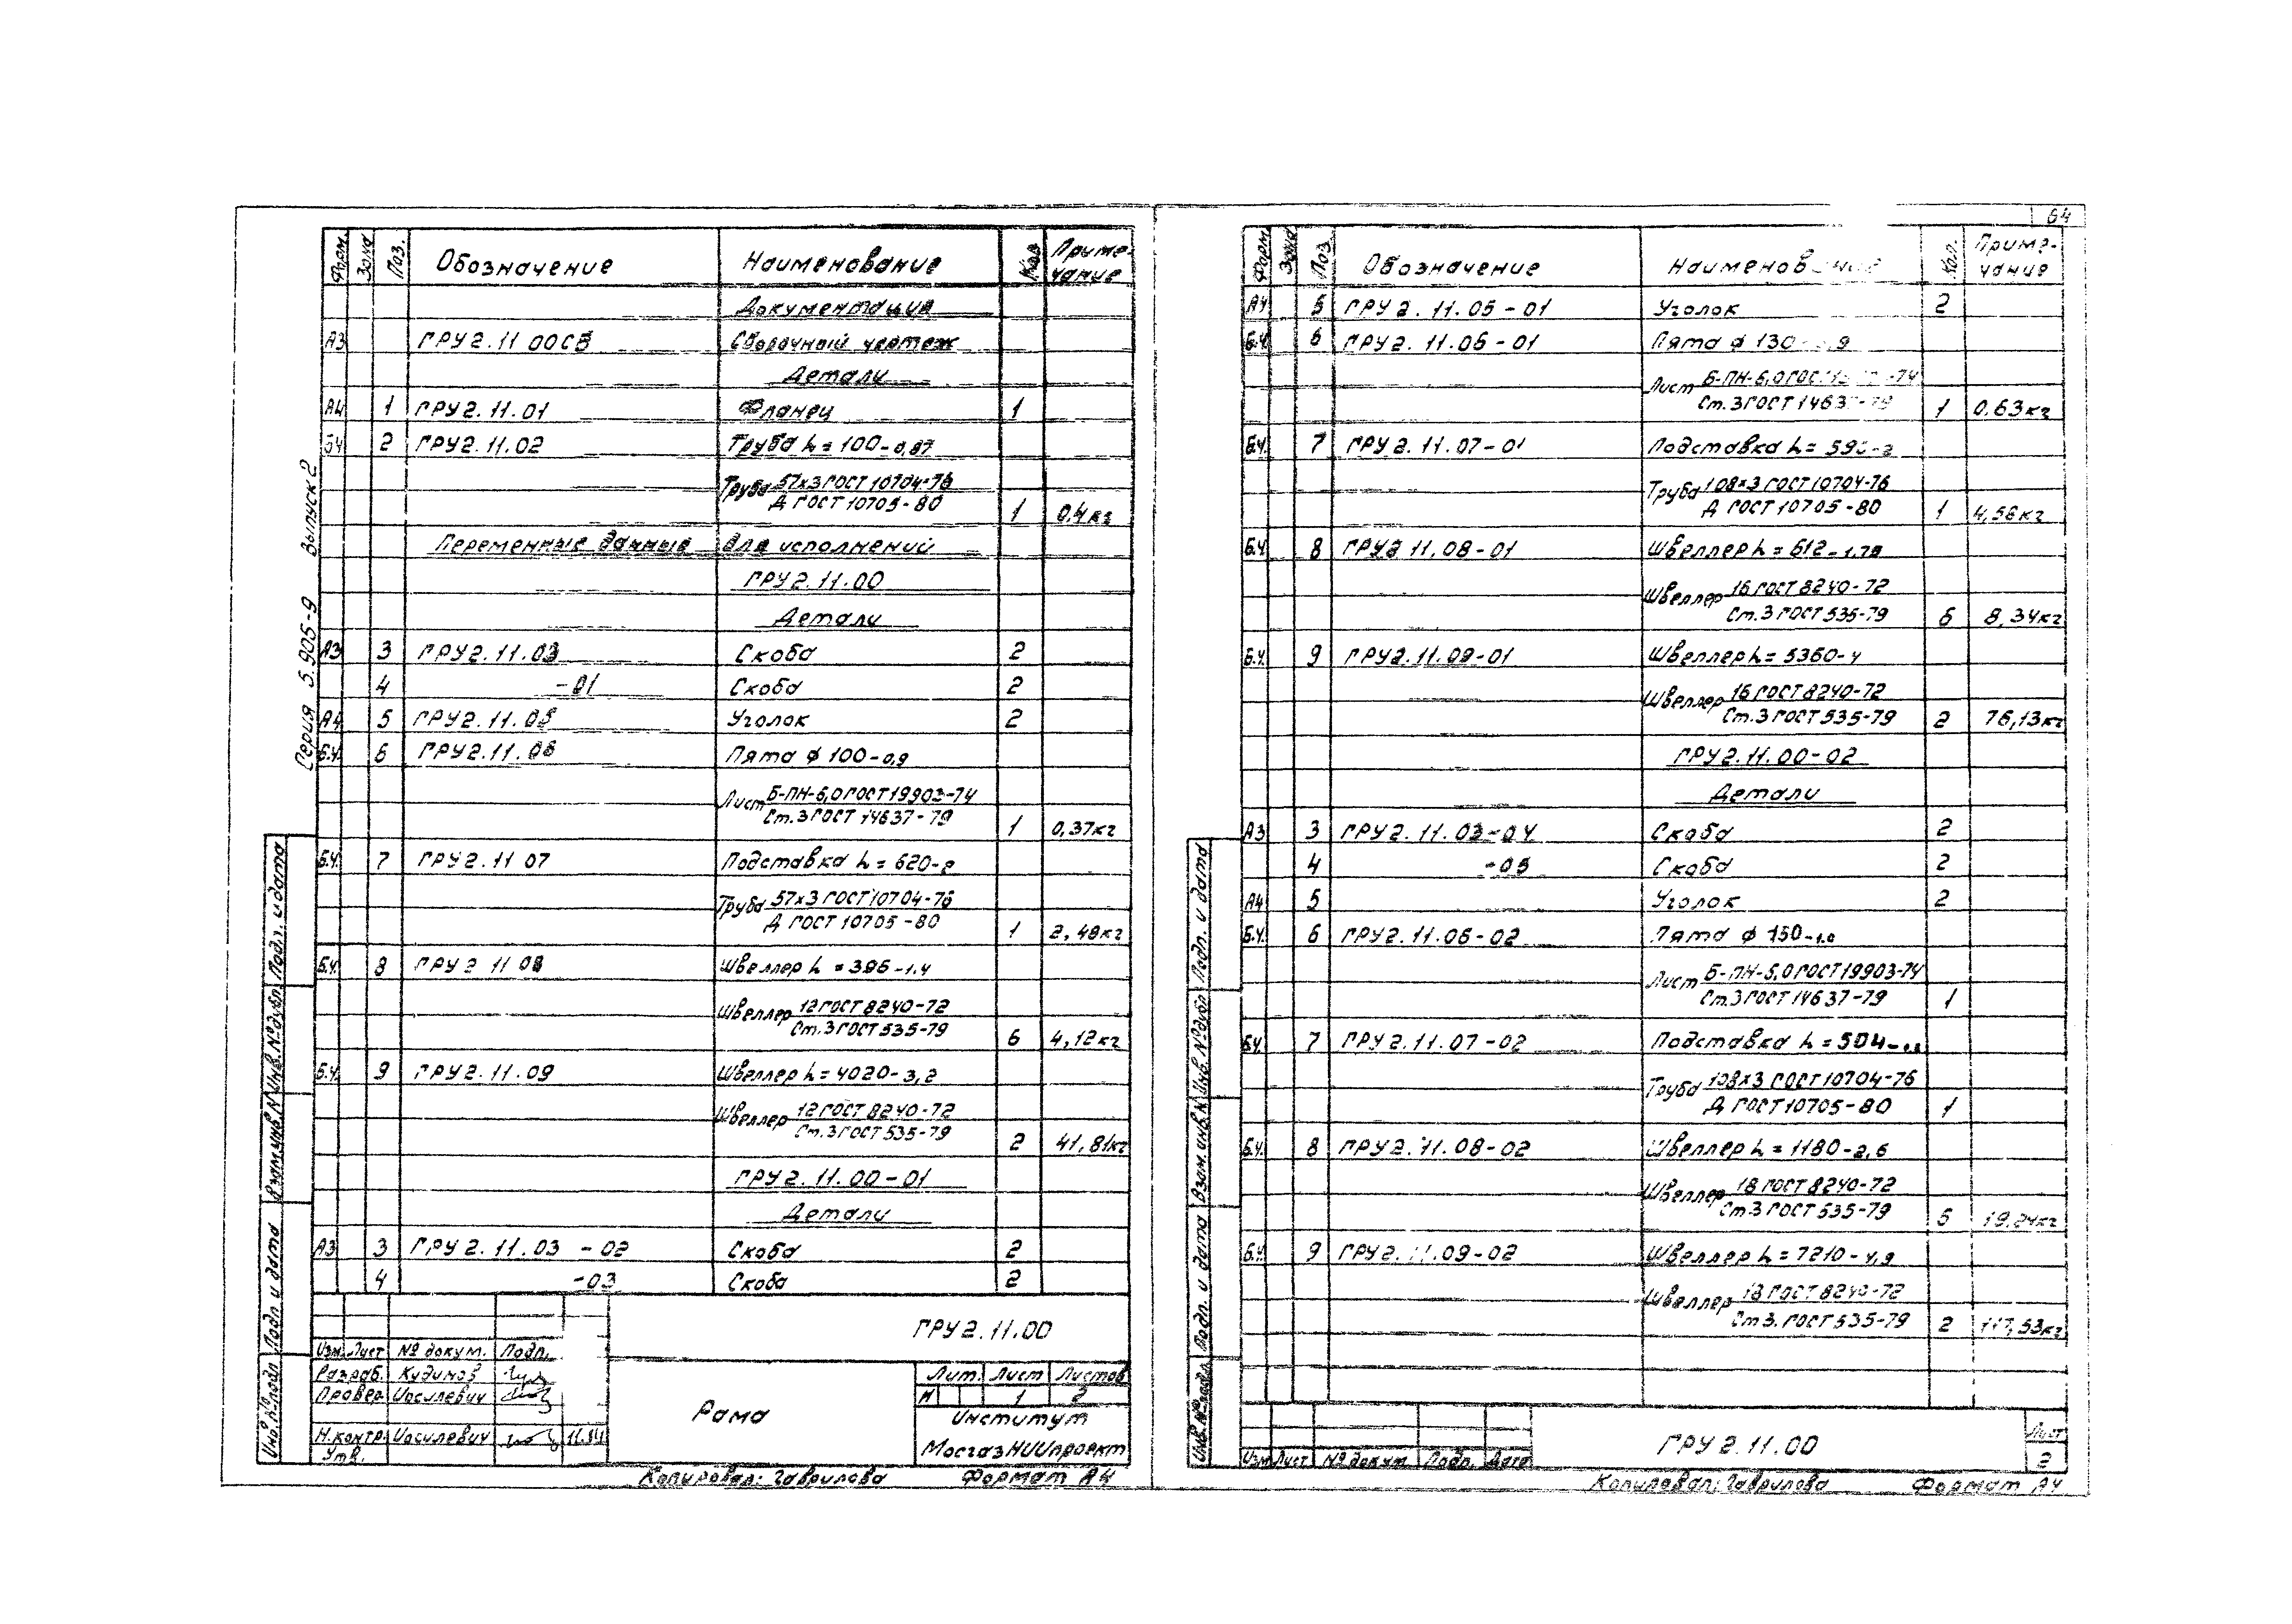 Серия 5.905-9 Выпуск 2
Форм. Зона Поз. Обозначение Наименование Кол Приме-
чание
Документация
А3 ГРУ2.11 00СБ Сборочный чертеж
Детали
А4 1 ГРУ2.11.01 Фланец 1
БЧ 2 ГРУ2.11.02 Труба L=100-0,87
Труба 57х3 ГОСТ 10704-76
Д ГОСТ 10705-80 1 0,4кг
Переменные данные для исполнений
ГРУ2.11.00
Детали
А3 3 ГРУ2.11.03 Скоба 2
4 -01 Скоба 2
А4 5 ГРУ2.11.05 Уголок 2
Б.Ч. 6 ГРУ2.11.06 Пята ф 100-0,9
Лист Б-ПН-6,0 ГОСТ 19903-74
Ст.3 ГОСТ 14637-79 1 0,37кг
Б.Ч. 7 ГРУ2.11 07 Подставка L=620-2
Труба 57х3 ГОСТ 10704-76
Д ГОСТ 10705-80 1 2,48кг
Б.Ч. 8 ГРУ2 11 08 Швеллер L=396-1.4
Швеллер 12 ГОСТ 8240-72
Ст.3 ГОСТ 535-79 6 4,12кг
Б.Ч. 9 ГРУ2.11.09 Швеллер L=4020-3,2
Швеллер 12 ГОСТ 8240-72
Ст.3 ГОСТ 535-79 2 41,81кг
ГРУ2.11.00-01
Детали
А3 3 ГРУ2.11.03 -02 Скоба 2
4 -03 Скоба 2
ГРУ2.11.00
Изм. Лист № докум. Подп.
Разраб. Кудимов
Провер. Иосилевич
Н.контр. Иосилевич 11.84
Утв.
Рама
Лит. Лист Листов
И 1 2
Институт
МосгазНИИпроект
Копировал: Гаврилова Формат А4
Подп. и дата
Инв.№ дубл.
Взам.инв.№
Подп. и дата
Инв.№ подл.
64
Форм. Зона Поз Обозначение Кол. Приме-
чание
А4 5 ГРУ2.11.05-01 Уголок 2
Б.Ч. 6 ГРУ2.11.06-01 Пята ф 130
Лист Б-ПН-6,0 ГОСТ -74
Ст.3 ГОСТ 1 0.63кг
Б.Ч. 7 ГРУ2.11.07-01 Подставка
Труба 108х3 ГОСТ 10704-76
Д ГОСТ 10705-80 1 4,56кг
Б.Ч. 8 ГРУ2 11.08-01 Швеллер L=612-1.78
Швеллер 16 ГОСТ 8240-72
Ст.3 ГОСТ 535-79 6 8,34кг
Б.Ч. 9 ГРУ2.11.09-01 Швеллер L=5360-4
Швеллер 16 ГОСТ 8240-72
Ст.3 ГОСТ 535-79 2 76,13кг
ГРУ2.11.00-02
Детали
А3 3 ГРУ2.11.03-04 Скоба 2
4 -05 Скоба 2
А4 5 Уголок 2
Б.Ч. 6 ГРУ2.11.06-02 Пята ф 150-1.0
Лист Б-ПН-6,0 ГОСТ 19903-74
Ст.3 ГОСТ 14637-79 1
Б.Ч. 7 ГРУ2.11.07-02 Подставка
Труба 108х3 ГОСТ 10704-76
Д ГОСТ 10705-80 1
Б.Ч. 8 ГРУ2.11.08-02 Швеллер L=1180-2,6
Швеллер 18 ГОСТ 8240-72
Ст.3 ГОСТ 535-79 5 19.24кг
Б.Ч. 9 ГРУ2.11.09-02 Швеллер L=7210-4,9
Швеллер 18 ГОСТ 8240-72
Ст 3. ГОСТ 535-79 2 117,53кг
Изм Лист № докум. Подп. Дата
ГРУ2.11.00
Лист
2
Копировал: Гаврилова Формат А4
Подп. и дата
Инв.№ дубл
Взам.инв.№
Подп. и дата
Инв.№ подл